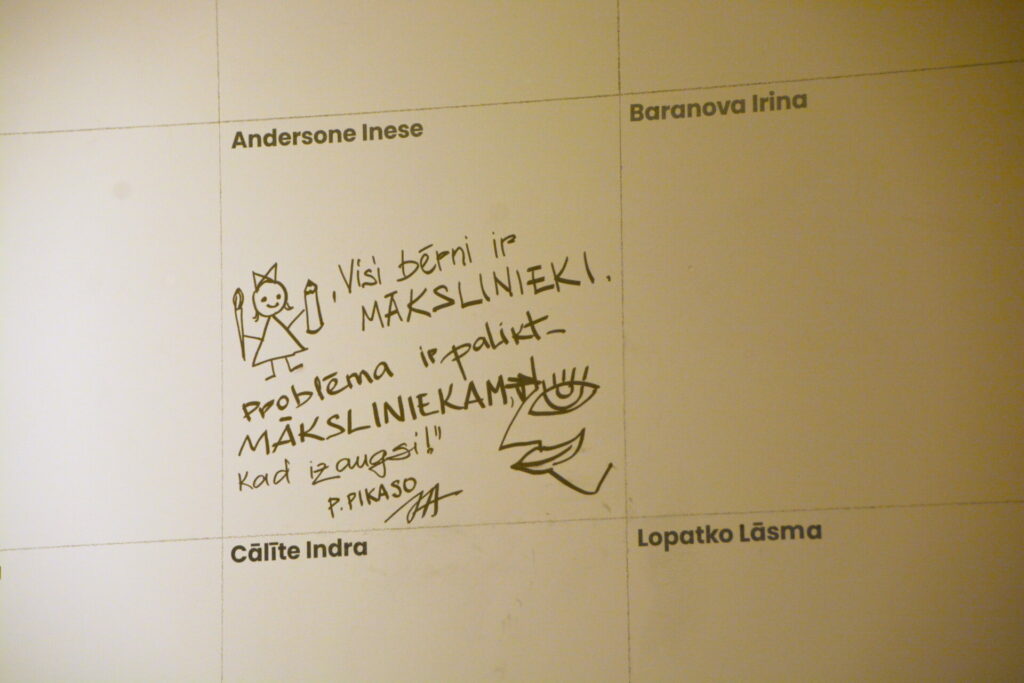 Andersone Inese
Baranova Irina
„Visi bērni ir
MĀKSLINIEKI.
Problēma ir palikt
MĀKSLINIEKAM,
kad izaugsi!"
P. PIKASO
Cālīte Indra
Lopatko Lāsma